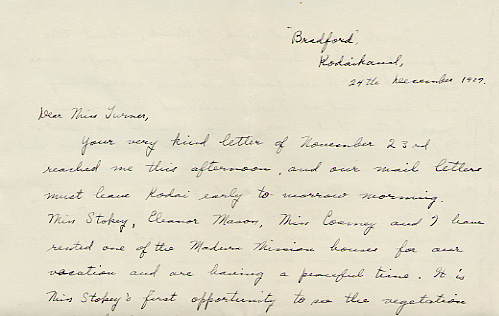 "Bradford",
Kodaikanal,
24th December 1929.
Dear Miss Turner,
Your very kind letter of November 23rd
reached me this afternoon, and our mail letters
must leave Kodai early to morrow morning.
Miss Stokey, Eleanor Mason, Miss Cooney and I have
rented one of the Madura Mission houses for our
vacation and are having a peaceful time. It is
Miss Stokey's first opportunity to see the vegetation